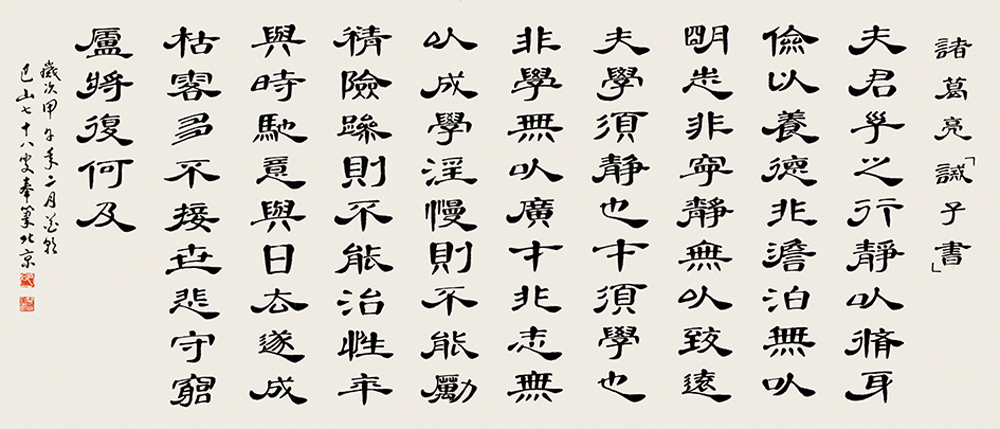 諸葛亮「誡子書」
夫君子之行靜以脩身
儉以養德非澹泊無以
明志非寧靜無以致遠
夫學須靜也才須學也
非學無以廣才非志無
以成學淫慢則不能勵
精險躁則不能治性年
與時馳意與日去遂成
枯落多不接世悲守窮
廬將復何及
歲次甲午年二月花朝
巴山七十八叟奉北京